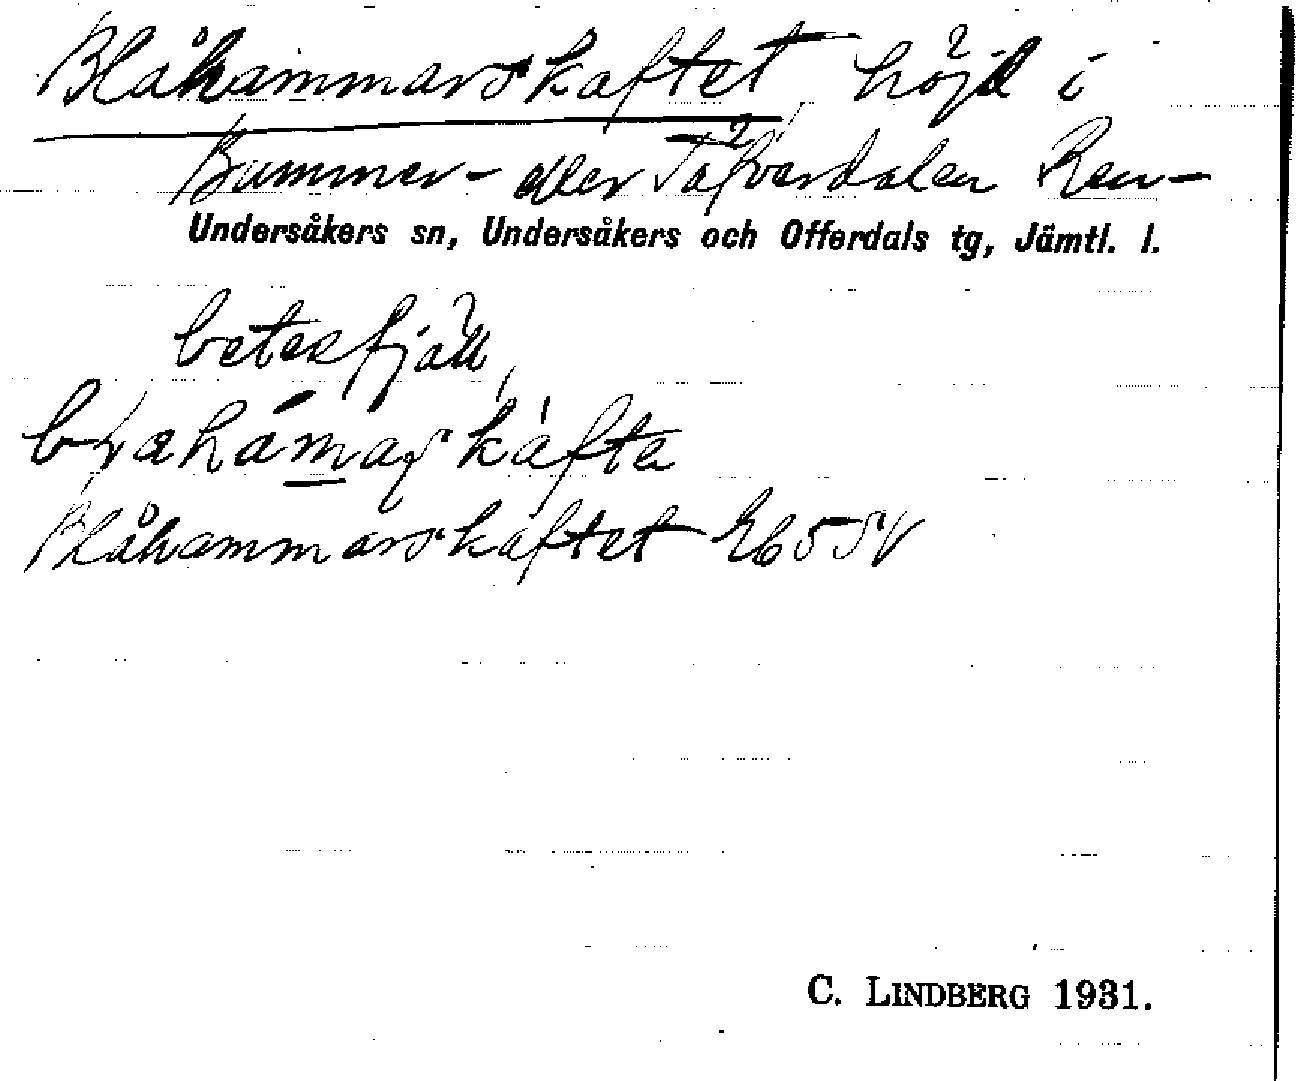 Blåhammarskaftet, höjd i
Bummer- eller Tälverdalen Ren-
Undersåkers sn, Undersåkers och Offerdals tg, Jämtl. l.
betesfjäll,
Blåhammarskaftet
C. LINDBERG 1931.